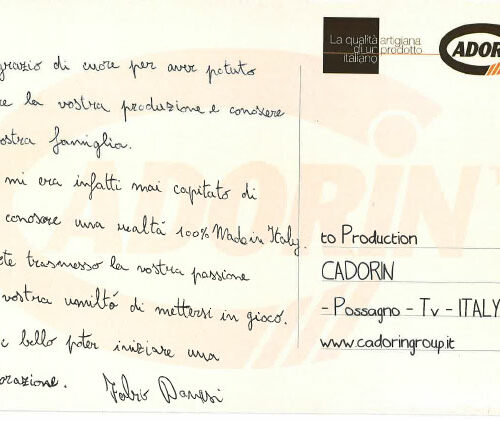 grazio di cuore per aver potuto
re la vostra produzione e conoscere
ostra famiglia.
mi era infatti mai capitato di
conoscere una realtá 100% Made in Italy.
te trasmesso la vostra passione
vostra umiltá di mettersi in gioco.
e bello poter iniziare una
orazione. Fabio Danesi
La qualità artigiana
di un prodotto
italiano
ADOR
ADORIN
to Production
CADORIN
- Possagno - Tv - ITALY
www.cadoringroup.it